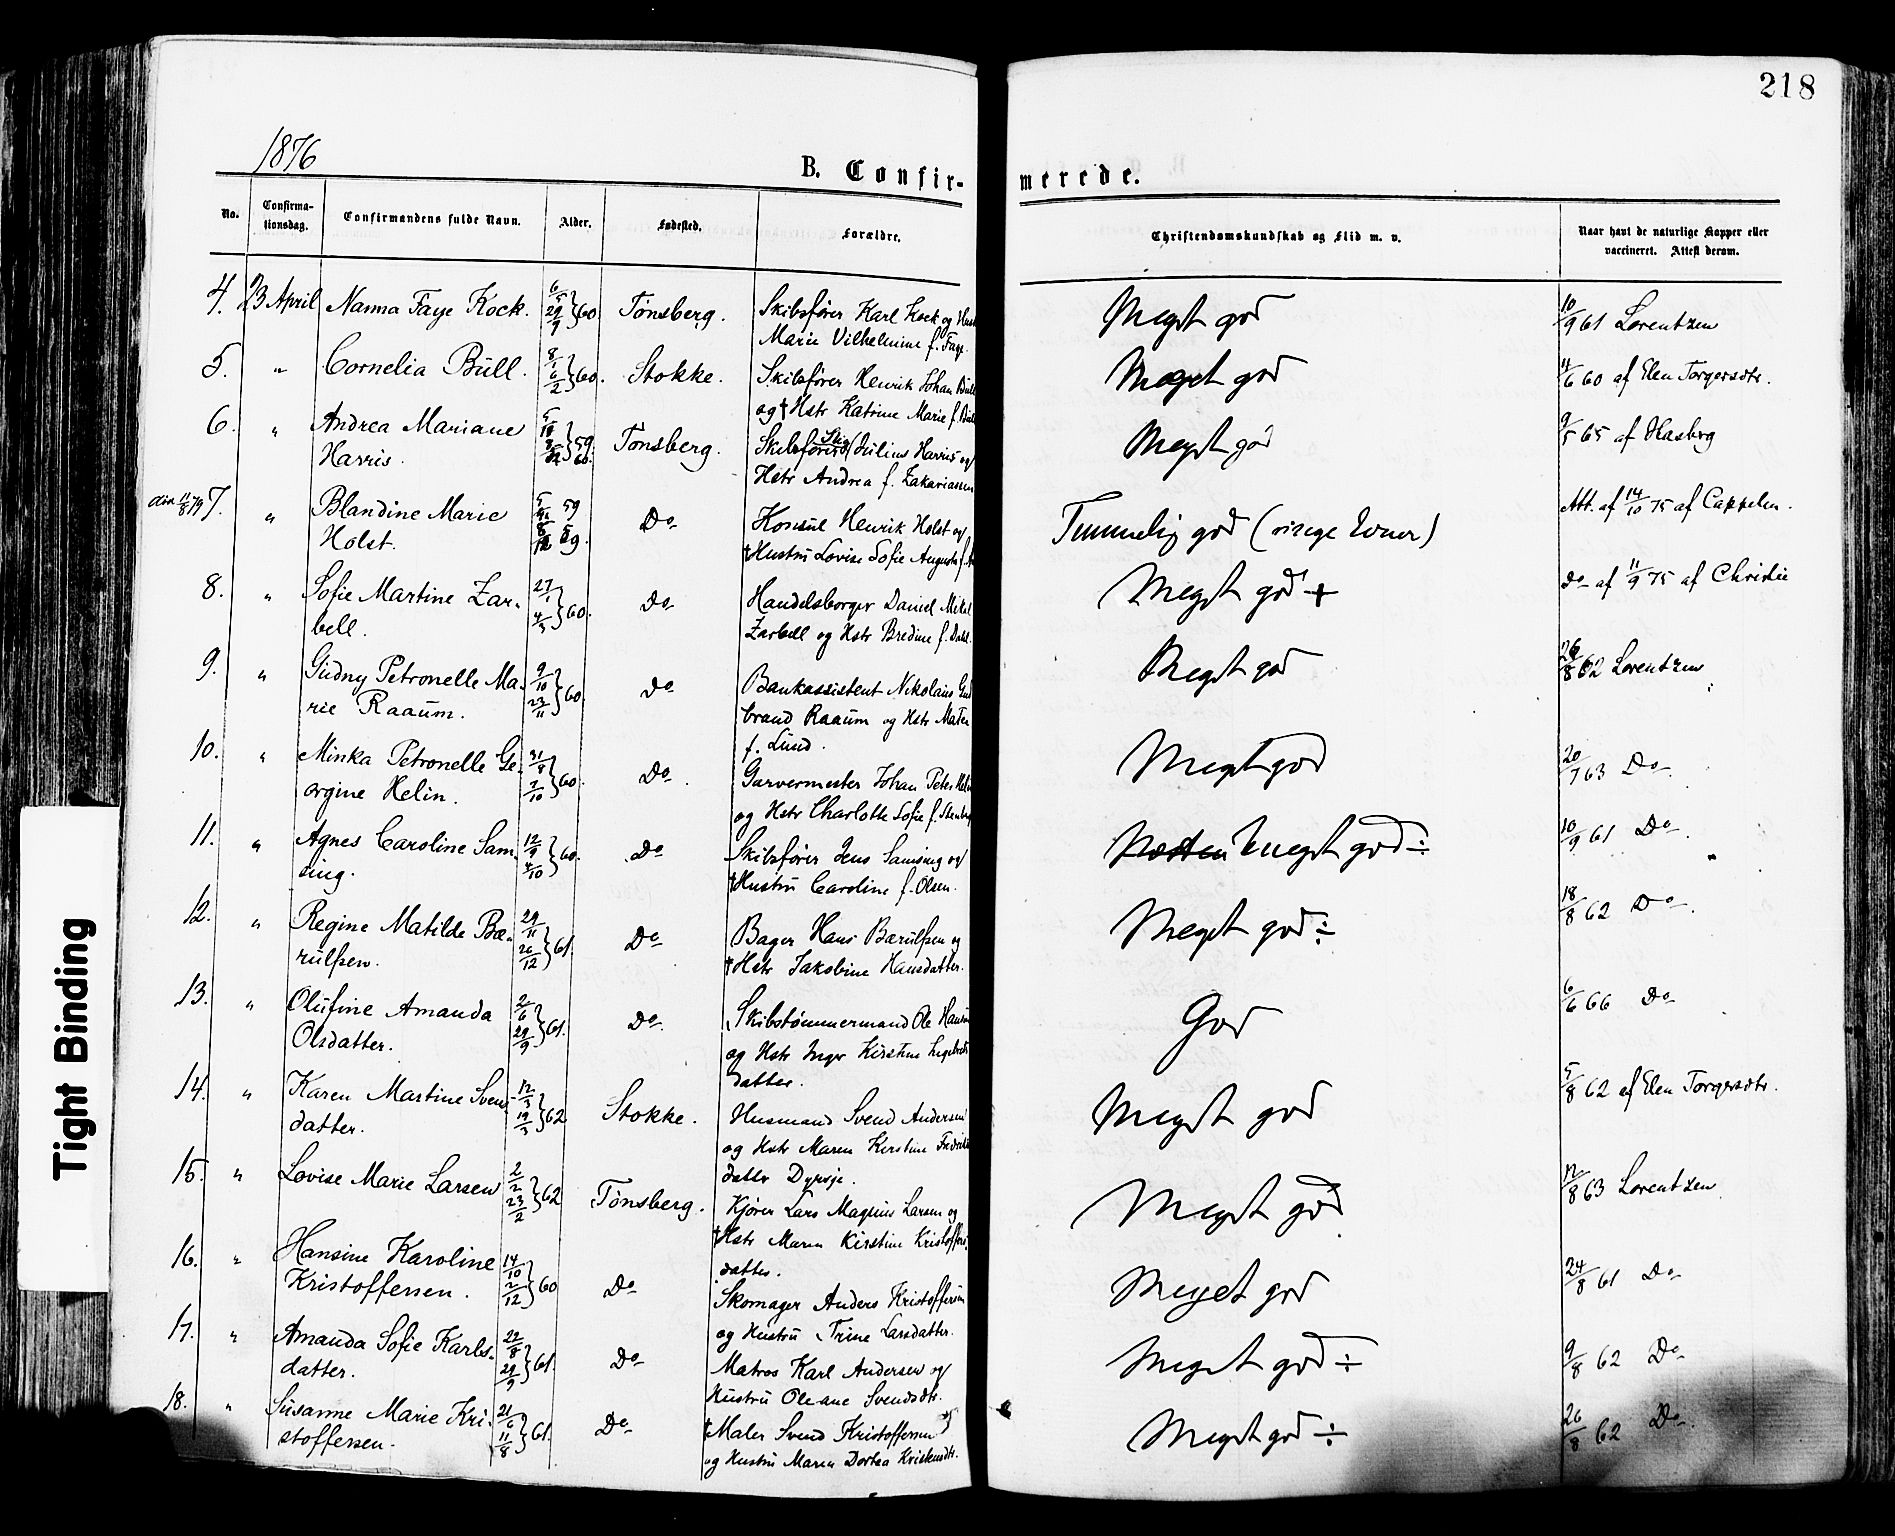 218
1876
B. Confir- merede.
No.
Confirma-
tionsdag.
Confirmandens fulde Navn.
Alder.
Fødested.
Forældre.
Christendomskundskab og Flid m. v.
Naar havt de naturlige Kopper eller
vaccineret. Attest derom.
4. 23 April Nanna Faye Kock. 6/5 29/9 } 60 Tønsberg. Skibsfører Karl Kock og
Marie Vilhelmine f. Faye.
Meget god
10/9 61 Lorentzen
5. " Cornelia Büll. 8/1 6/2 } 60. Stokke. Skibsfører Henrik Johan Büll
og † Hstr Katrine Marie f.
Meget god
60 af Elen Torgersdtr.
6. " Andrea Mariane
Harris. 59 60. Tønsberg. Skibsfører Julius Harris og
Hstr Andrea f. Zakariassen
Meget god
9/5 65 af Hasberg
7. " Blandine Marie
Holst. 59 59. Do Konsul Henrik Holst og
† Hustru Lovise Sofie Augusta f.
Temmelig god (ringe Evner)
Att. af 14/10 75 af Cappelen.
8. " Sofie Martine Zar-
bell. 27/1 4/3 } 60. Do Handelsborger Daniel Mikal
Zarbell og Hstr Bredine f. Dahl.
Meget god +
do af 11/9 75 af Christie
9. " Gudny Petronelle Ma-
rie Raaum. 9/10 23/11 } 60. Do Bankassistent Nikolaus Gud
brand Raaum og Hstr Maren
f. Lund.
Meget god
26/8 62 Lorentzen
10. " Minka Petronelle Ge-
orgine Helin. 31/8 7/10 } 60. Do. Garvermester Johan Peter Helin
og Hstr Charlotte Sofie f.
Meget god
20/7 63 Do
11. " Agnes Caroline Sam-
sing. 12/9 4/10 } 60. Do Skibsfører Jens Samsing og
† Hustru Caroline f. Olsen.
Næsten meget god ÷
10/9 61 Do.
12. " Regine Matilde Bæ-
rulfsen. 29/11 26/12 } 61. Do Bager Hans Bærulfsen og
† Hstr Jakobine Hansdatter.
Meget god ÷
18/8 62 Do.
13. " Olufine Amanda
Olsdatter. 2/6 29/9 } 61. Do. Skibstømmermand Ole Hansen
og Hstr Inger Kirstine
datter.
God
6/6 66 Do
14. " Karen Martine Svens-
datter. 12/3 19/3 } 62 Stokke. Husmand Svend Andersen
og Hstr Maren Kirstine Fredriks
datter Dyrsø.
Meget god
5/8 62 af Elen Torgersdtr.
15. " Lovise Marie Larsen 2/2 23/2 } 62 Tønsberg. Kjører Lars Magnus Larsen og
† Hstr Maren Kirstine Kristoffers
datter.
Meget god
17/8 63 Lorentzen
16. " Hansine Karoline
Kristoffersen. 14/10 2/12 } 60 Do Skomager Anders Kristoffersen
og Hustru Trine Larsdatter.
Meget god
24/8 61 Do
17. " Amanda Sofie Karls-
datter. 22/8 29/9 } 61. Do Matros Karl Andersen og
Hustru Oleane Svendsdtr.
Meget god ÷
9/8 62 Do
18. " Susanne Marie Kri-
stoffersen. 21/6 11/8 } 61. Do † Maler Svend Kristoffersen
og Hustru Maren Dortea Kristensdtr.
Meget god ÷
26/8 62 Do.
Tight Binding